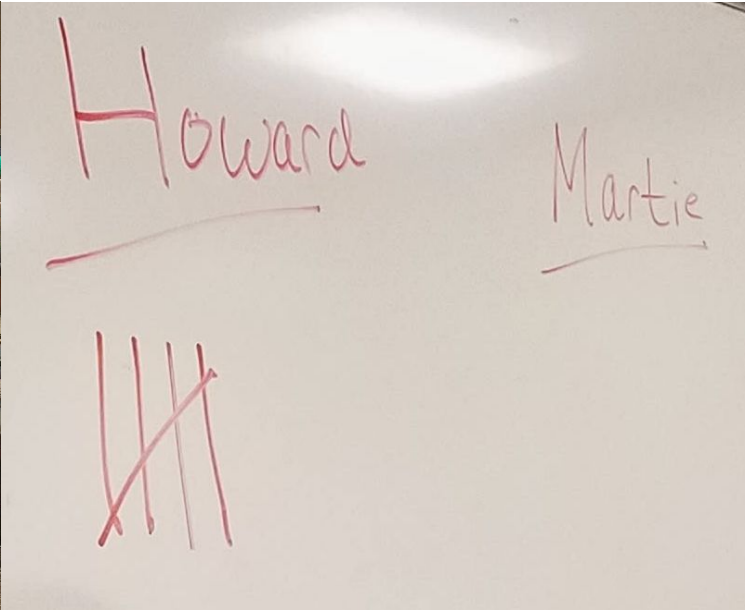 Howard
Martie